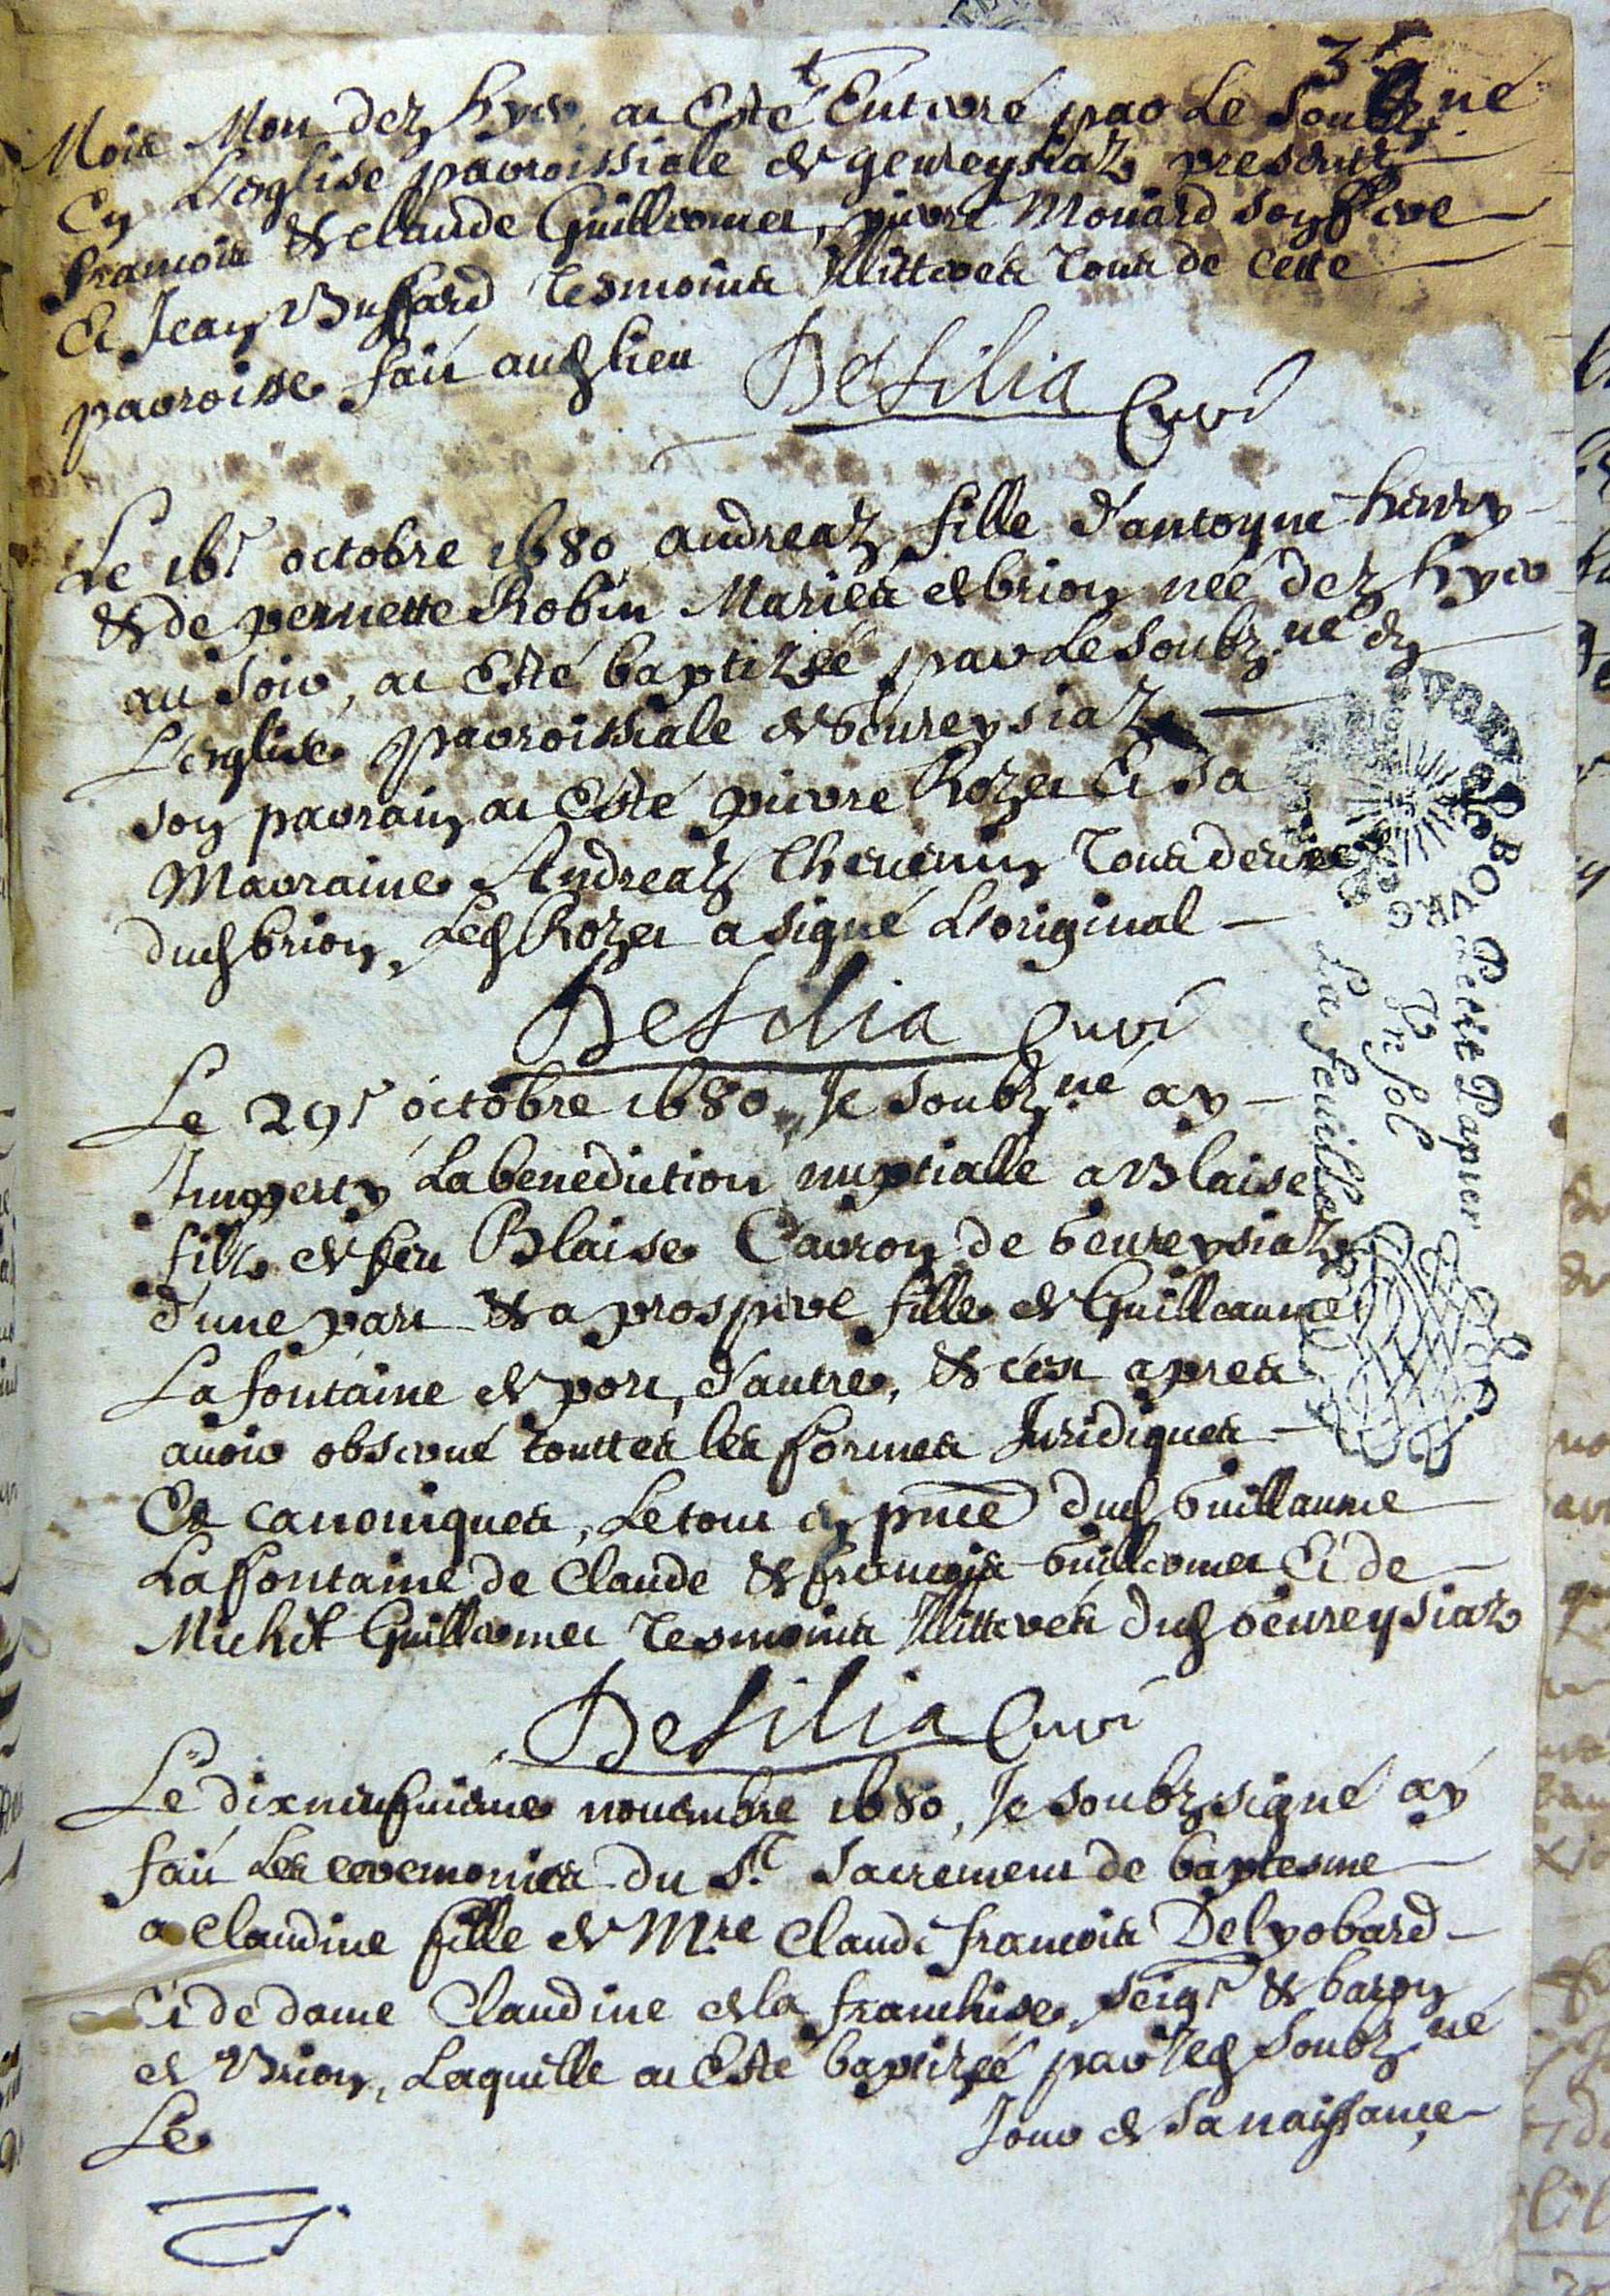 3
Mois Mon dez hyer a esté Enterré par Le Soubz.né
En L'esglise parroissiale de geureysiaz presentz
francois & claude Guillermet, pierre Monard son frere
Et Jean Buffard tesmoins Illitterés tous de cette
parroisse fait aud lieu
DeSilia Curé
Le 16e octobre 1680 andreaz fille d'antoyne henry
& de pernette Robin Mariés de brion née dez hyer
au soir, a esté baptizée par Le Soubz.né En
L'esglise parroissiale de Geureysiaz
son parrain a esté pierre Rozet Et Sa
Marraine Andreaz Thevenin tous deux
dud brion, Led Rozet a signé L'original
DeSilia Curé
Le 29e octobre 1680 Je soubz.né ay
Imperty La benediction nuptialle a Blaise
filz de feu Blaise Carron de Geureysiaz
d'une part & a prospere fille de Guillaume
La fontaine de port, d'autre, & c'est apres
avoir observé touttes les formes Juridiques
Et canoniques, Le tout en pnce dud Guillaume
La fontaine de Claude & francois Guillermet Et de
Michel Guillermet tesmoins Illitterés dud Geureysiaz
DeSilia Curé
Le dixneufuieme nouembre 1680, Je soubzsigné ay
fait Les ceremonies du St. Sacrement de baptesme
a Claudine fille de Mre Claude francois Delyobard
Et de dame Claudine de la franchise, seigr & baron
de Brion, Laquelle a esté baptizée par led Soubz.né
Le Jour de Sa naissance
Petit Papier
Vn sol
La feuille